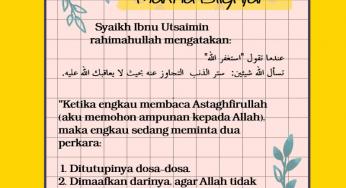 Syaikh Ibnu Utsaimin
rahimahullah mengatakan:
عندما تقول "أستغفر الله"
تسأل الله شيئين: ستر الذنب التجاوز عنه بحيث لا يعاقبك الله عليه.
"Ketika engkau membaca Astaghfirullah
(aku memohon ampunan kepada Allah),
maka engkau sedang meminta dua
perkara:
1. Ditutupinya dosa-dosa.
2. Dimaafkan darinya, agar Allah tidak